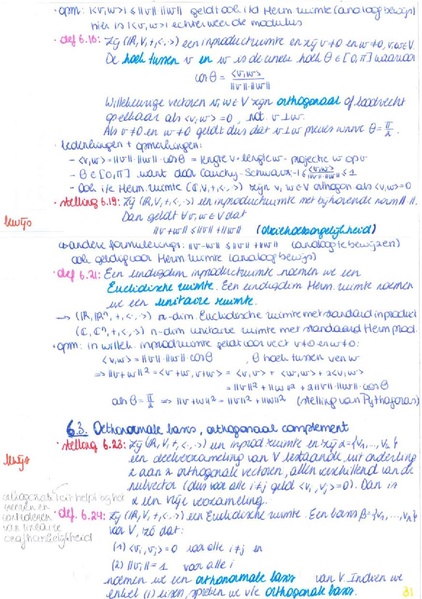 • opm: |<v,w>| ≤ ||v|| ||w|| geldt ook i/d Herm ruimte (analoog bewijs)
hier is |<v,w>| echter weer de modulus
• def 6.18: Zij (ℝ,V,+,<,>) een inproductruimte en zij v≠0 en w≠0, v,w∈V.
De hoek tussen v en w is de unieke hoek θ∈[0,π] waarvoor
cos θ = <v,w> / ||v|| ||w||
Willekeurige vectoren v,w ∈ V zijn orthogonaal of loodrecht
op elkaar als <v,w> = 0, not. v⊥w
Als v≠0 en w≠0 geldt dus dat v⊥w precies wnnr θ = π/2.
• bedenkingen + opmerkingen:
- <v,w> = ||v|| ||w|| cos θ = lengte v · lengte w · projectie w op v
- θ∈[0,π] want door Cauchy-Schwarz -1 ≤ <v,w> / ||v|| ||w|| ≤ 1
- Ook i/e Herm. ruimte (ℂ,V,+,<,>) zijn v,w∈V orthogon als <v,w>=0
• stelling 6.19: Zij (ℝ,V,+,<,>) een inproductruimte met bijhorende norm ||·||.
bewijs
Dan geldt ∀v,w∈V dat
||v+w|| ≤ ||v|| + ||w|| (driehoeksongelijkheid)
andere formulering: ||v-w|| ≤ ||v|| + ||w|| (analoog te bewijzen)
ook geldig voor Herm ruimte (analoog bewijs)
• def 6.21: Een eindigdim inproductruimte noemen we een
Euclidische ruimte. Een eindigdim Herm. ruimte noemen
we een unitaire ruimte.
→ (ℝ,ℝⁿ,+,<,>) n-dim. Euclidische ruimte met standaard inproduct
(ℂ,ℂⁿ,+,<,>) n-dim unitaire ruimte met standaard Hermprod.
• opm: in willek. inproductruimte geldt voor vect v≠0 en w≠0:
<v,w> = ||v|| ||w|| cos θ , θ hoek tussen v en w
⇒ ||v+w||² = <v+w, v+w> = <v,v> + <w,w> + 2<v,w>
= ||v||² + ||w||² + 2||v|| ||w|| cos θ
als θ = π/2 ⇒ ||v+w||² = ||v||² + ||w||² (stelling van Pythagoras)
6.3. Orthonormale basis, orthogonaal complement
• stelling 6.23: Zij (ℝ,V,+,<,>) een inprod ruimte en zij α={v₁,...,vₖ}
bewijs
een deelverzameling van V bestaande uit onderling
2 aan 2 orthogonale vectoren, allen verschillend van de
nulvector (dus voor alle i≠j geldt <vᵢ,vⱼ>=0). Dan is
α een vrije verzameling.
• def. 6.24: Zij (ℝ,V,+,<,>) een Euclidische ruimte. Een basis β={v₁,...,vₙ}
voor V, zó dat:
(1) <vᵢ,vⱼ> = 0 voor alle i≠j en
(2) ||vᵢ|| = 1 voor alle i
noemen we een orthonormale basis van V. Indien we
enkel (1) eisen, spreken we v/e orthogonale basis.
31